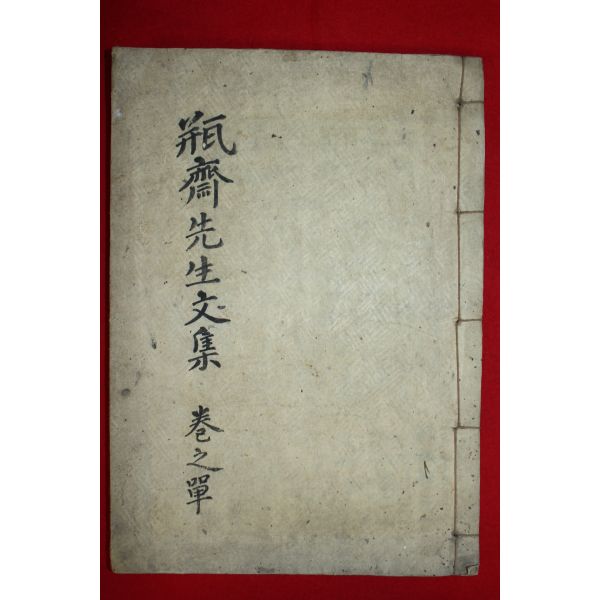 瓶齋先生文集 卷之單